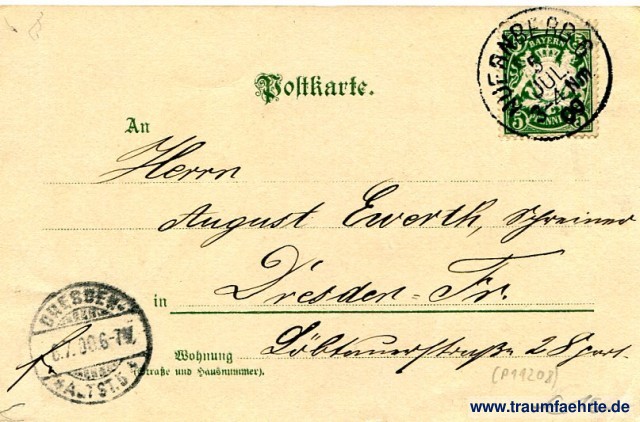 Postkarte.
BAYERN
5 5
PFENNIG
NUERNBERG
5
JUL
An
Herrn
August Ewerth, Schreiner
in Dresden=Fr.
DRESDEN-
6.7.00.6-7N.
ALTST.
Wohnung Löbtauerstraße 2
(Straße und Hausnummer).
(P11203)
www.traumfaehrte.de